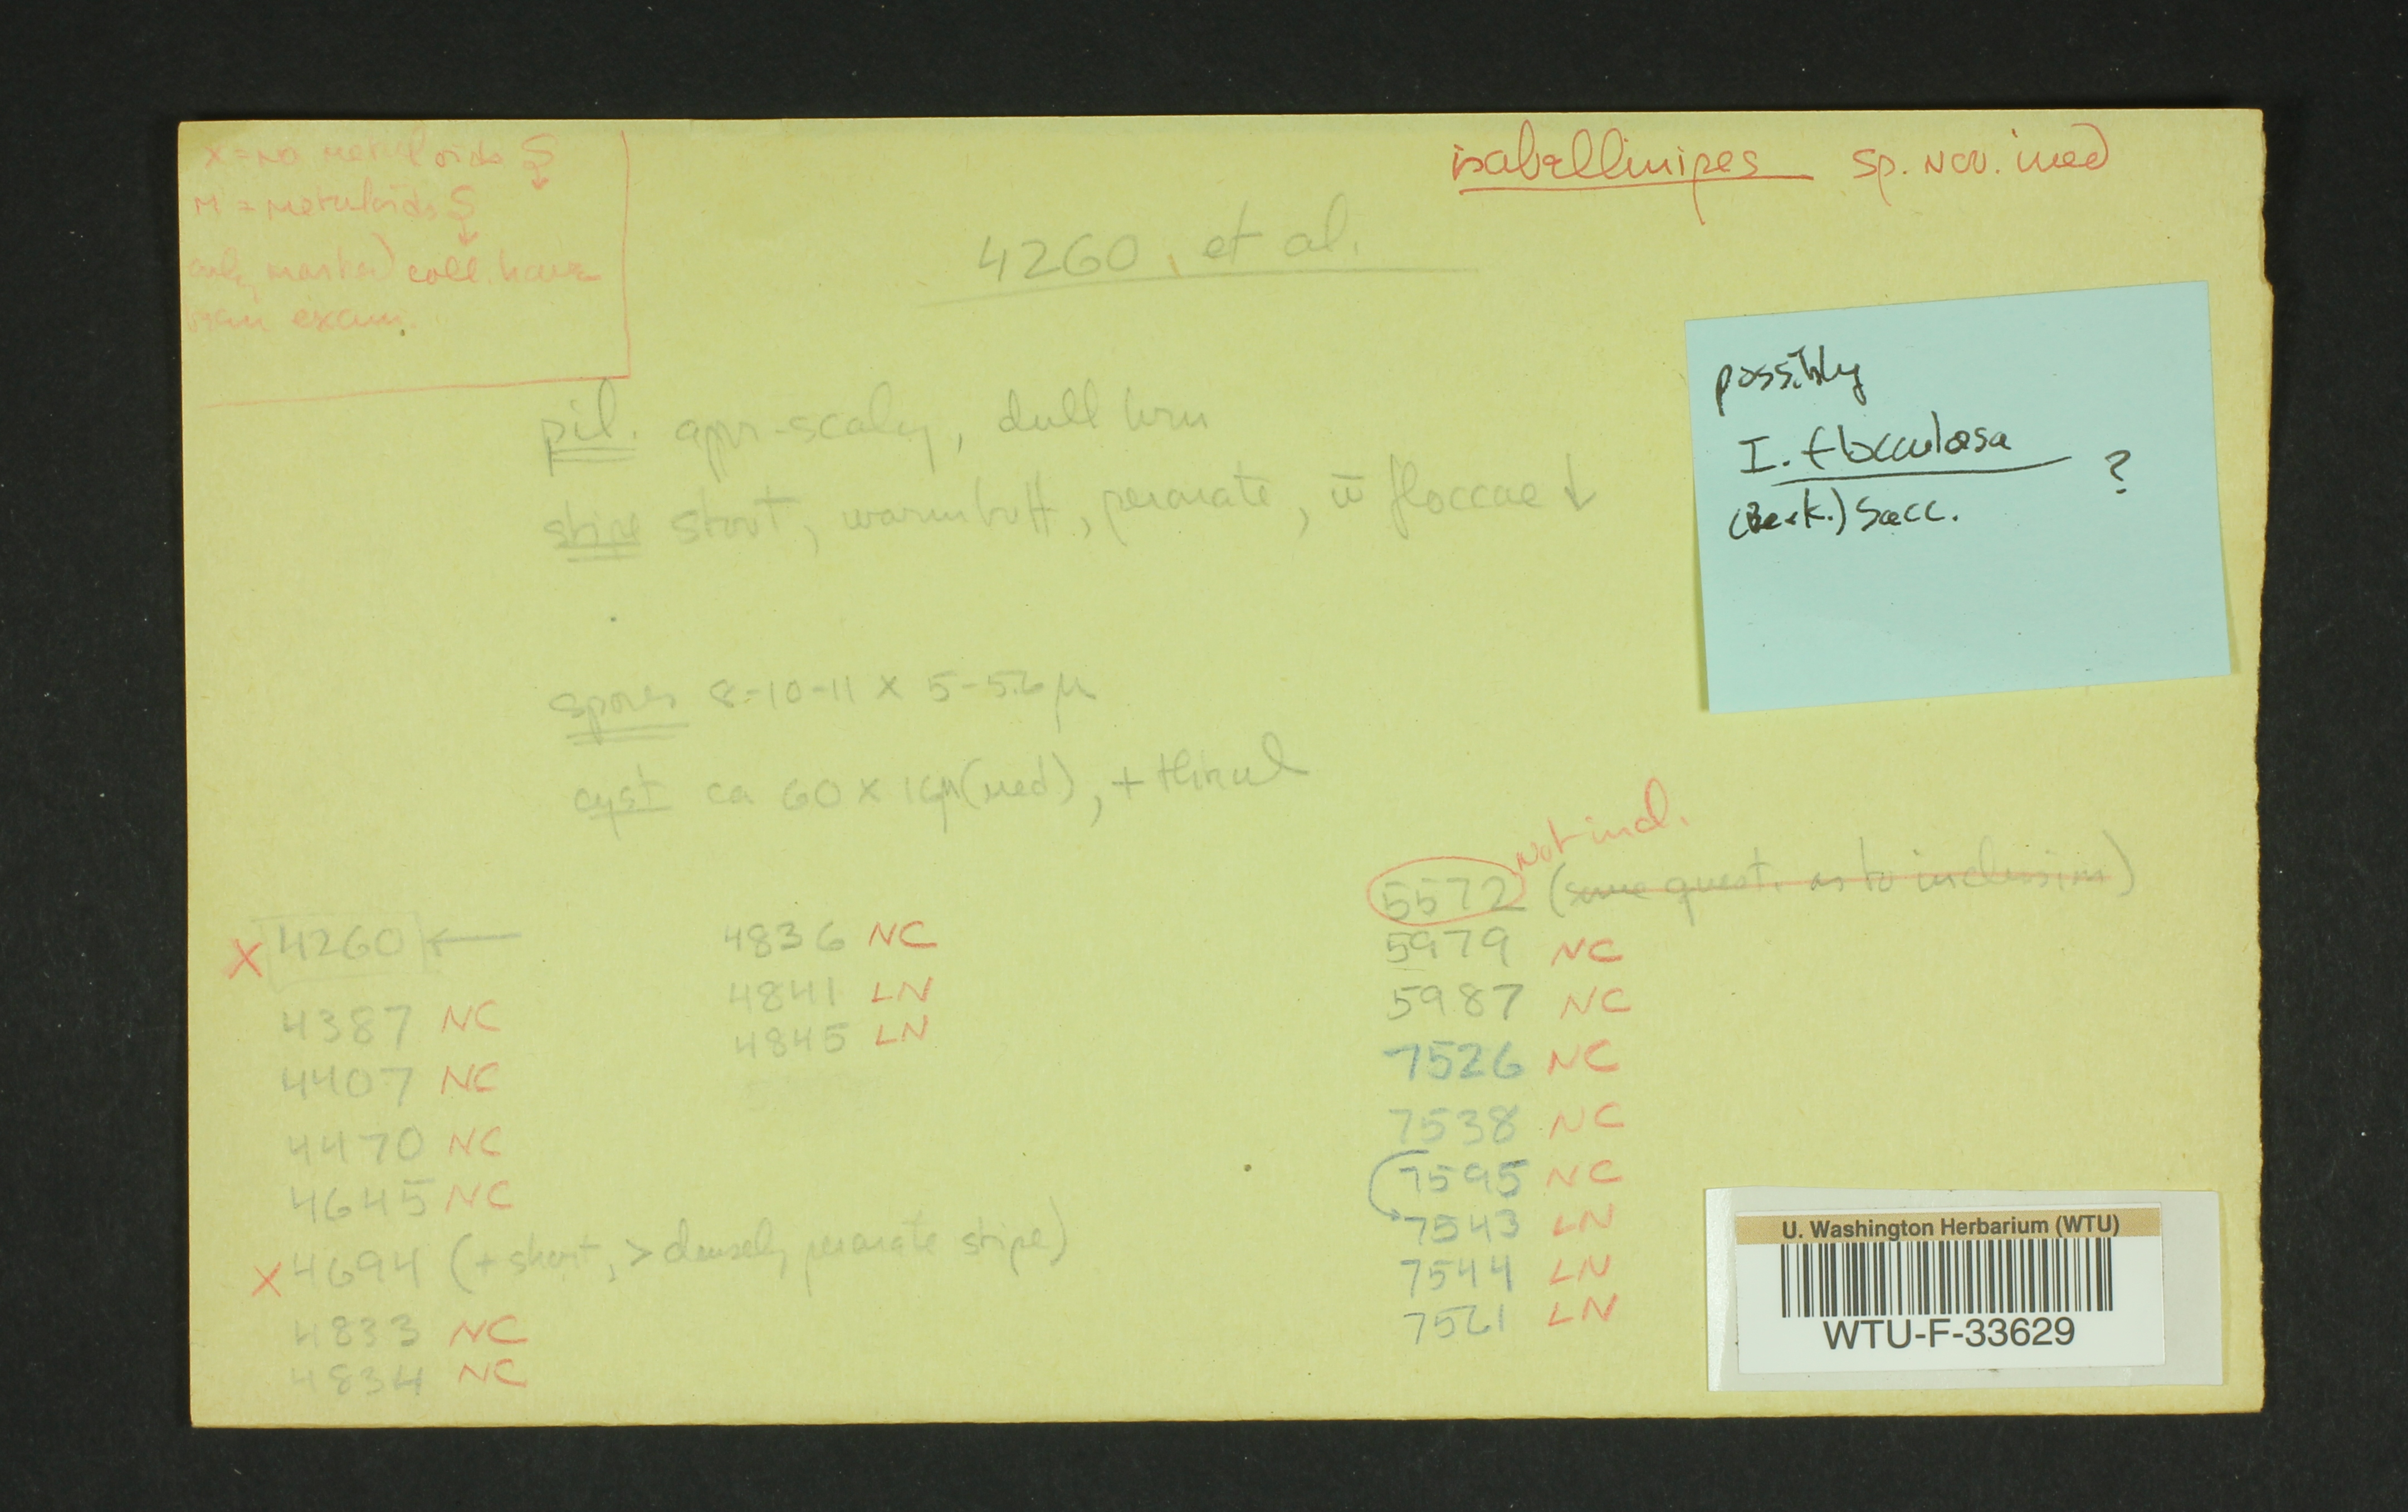 x = no metuloids
M = metuloids
only marked coll. have
been exam.
isabellinipes sp. nov. ined
4260, et al.
possibly
I. flocculosa ?
(Berk.) Sacc.
pil. appr-scaly, dull brn
stipe stout, warm buff, peronate, w̄ floccae ↓
spores 8-10-11 x 5-5.6 µ
cyst ca 60 x 16µ (med), + thinwl
Not incl.
5572 (some quest. as to inclusion)
5979 NC
5987 NC
7526 NC
7538 NC
7595 NC
7543 LN
7544 LN
7521 LN
X 4260 ←
4387 NC
4407 NC
4470 NC
4645 NC
X 4694 (+ short, > densely peronate stipe)
4833 NC
4834 NC
4836 NC
4841 LN
4845 LN
U. Washington Herbarium (WTU)
WTU-F-33629